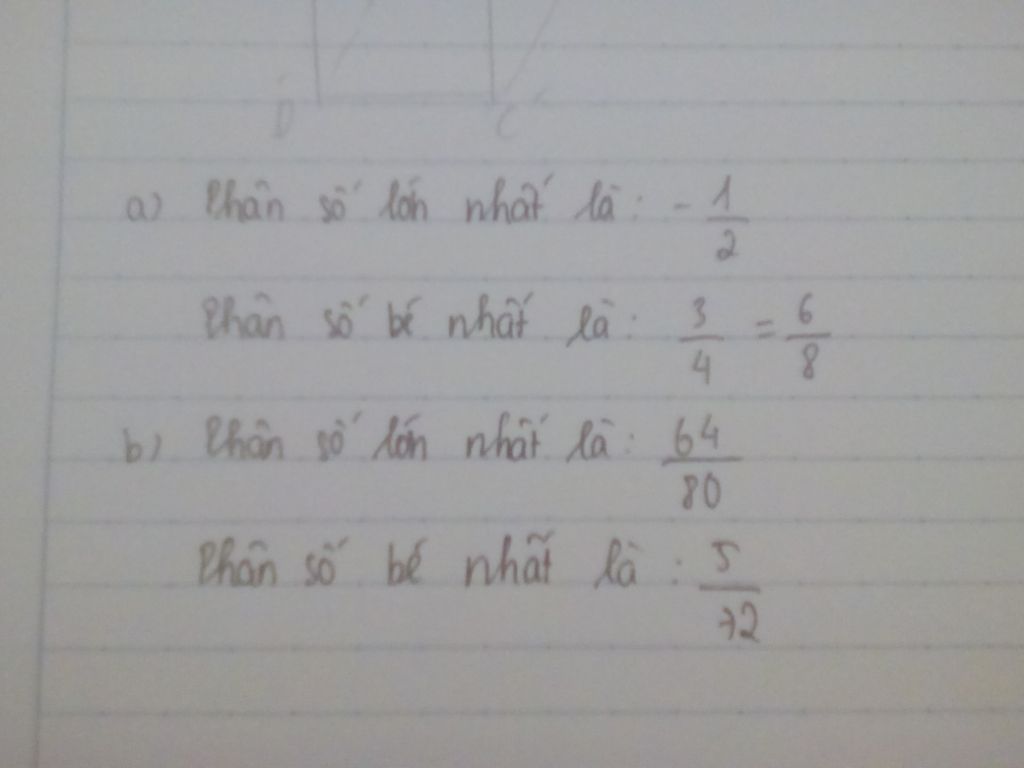 D C
a) Phân số lớn nhất là: - 1/2
Phân số bé nhất là: 3/4 = 6/8
b) Phân số lớn nhất là: 64/80
Phân số bé nhất là: 5/72